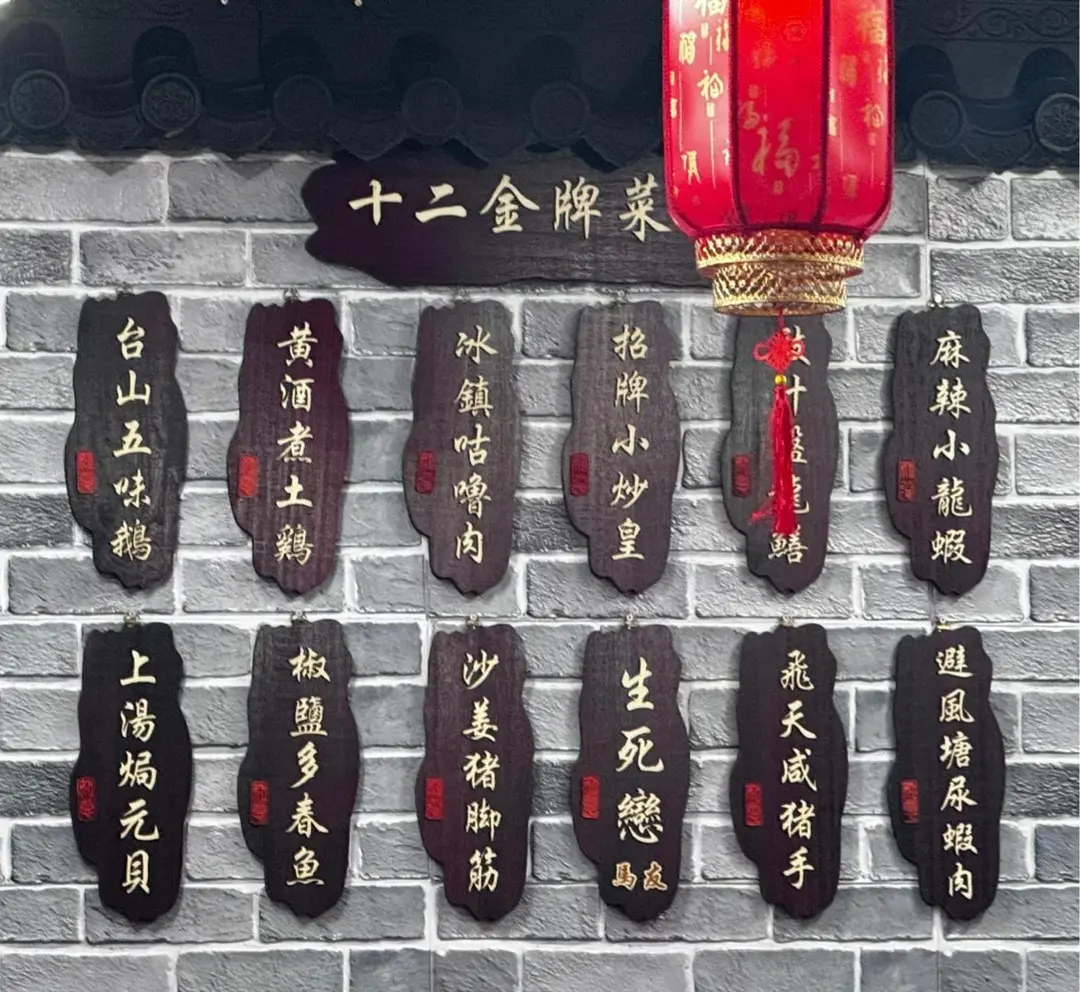 十二金牌菜
台山五味鵝
黄酒煮土鷄
冰鎮咕嚕肉
招牌小炒皇
豉汁盤龍鱔
麻辣小龍蝦
上湯焗元貝
椒鹽多春魚
沙姜猪脚筋
生死戀
馬友
飛天咸猪手
避風塘尿蝦肉
福
福